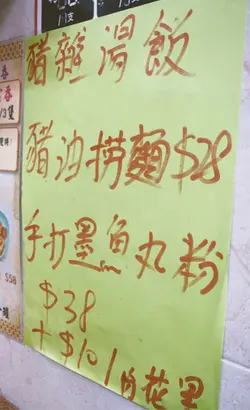 豬雜湯飯
豬油撈麵$28
手打墨魚丸粉
$38
+$10/肉